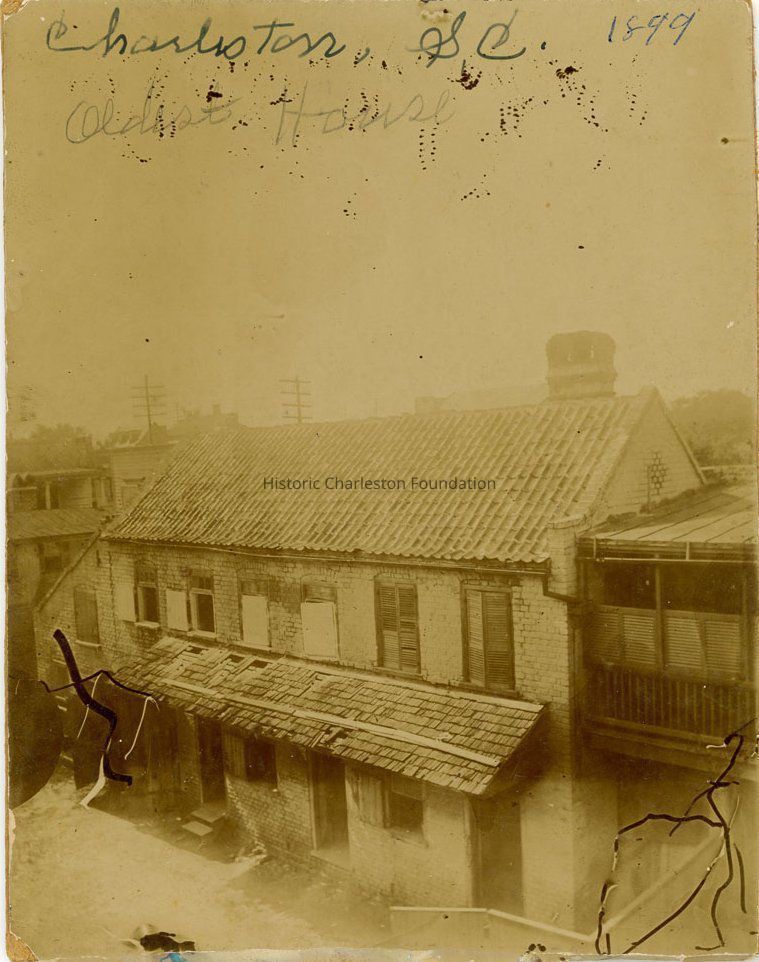 Charleston, S.C. 1899
Oldest House
Historic Charleston Foundation